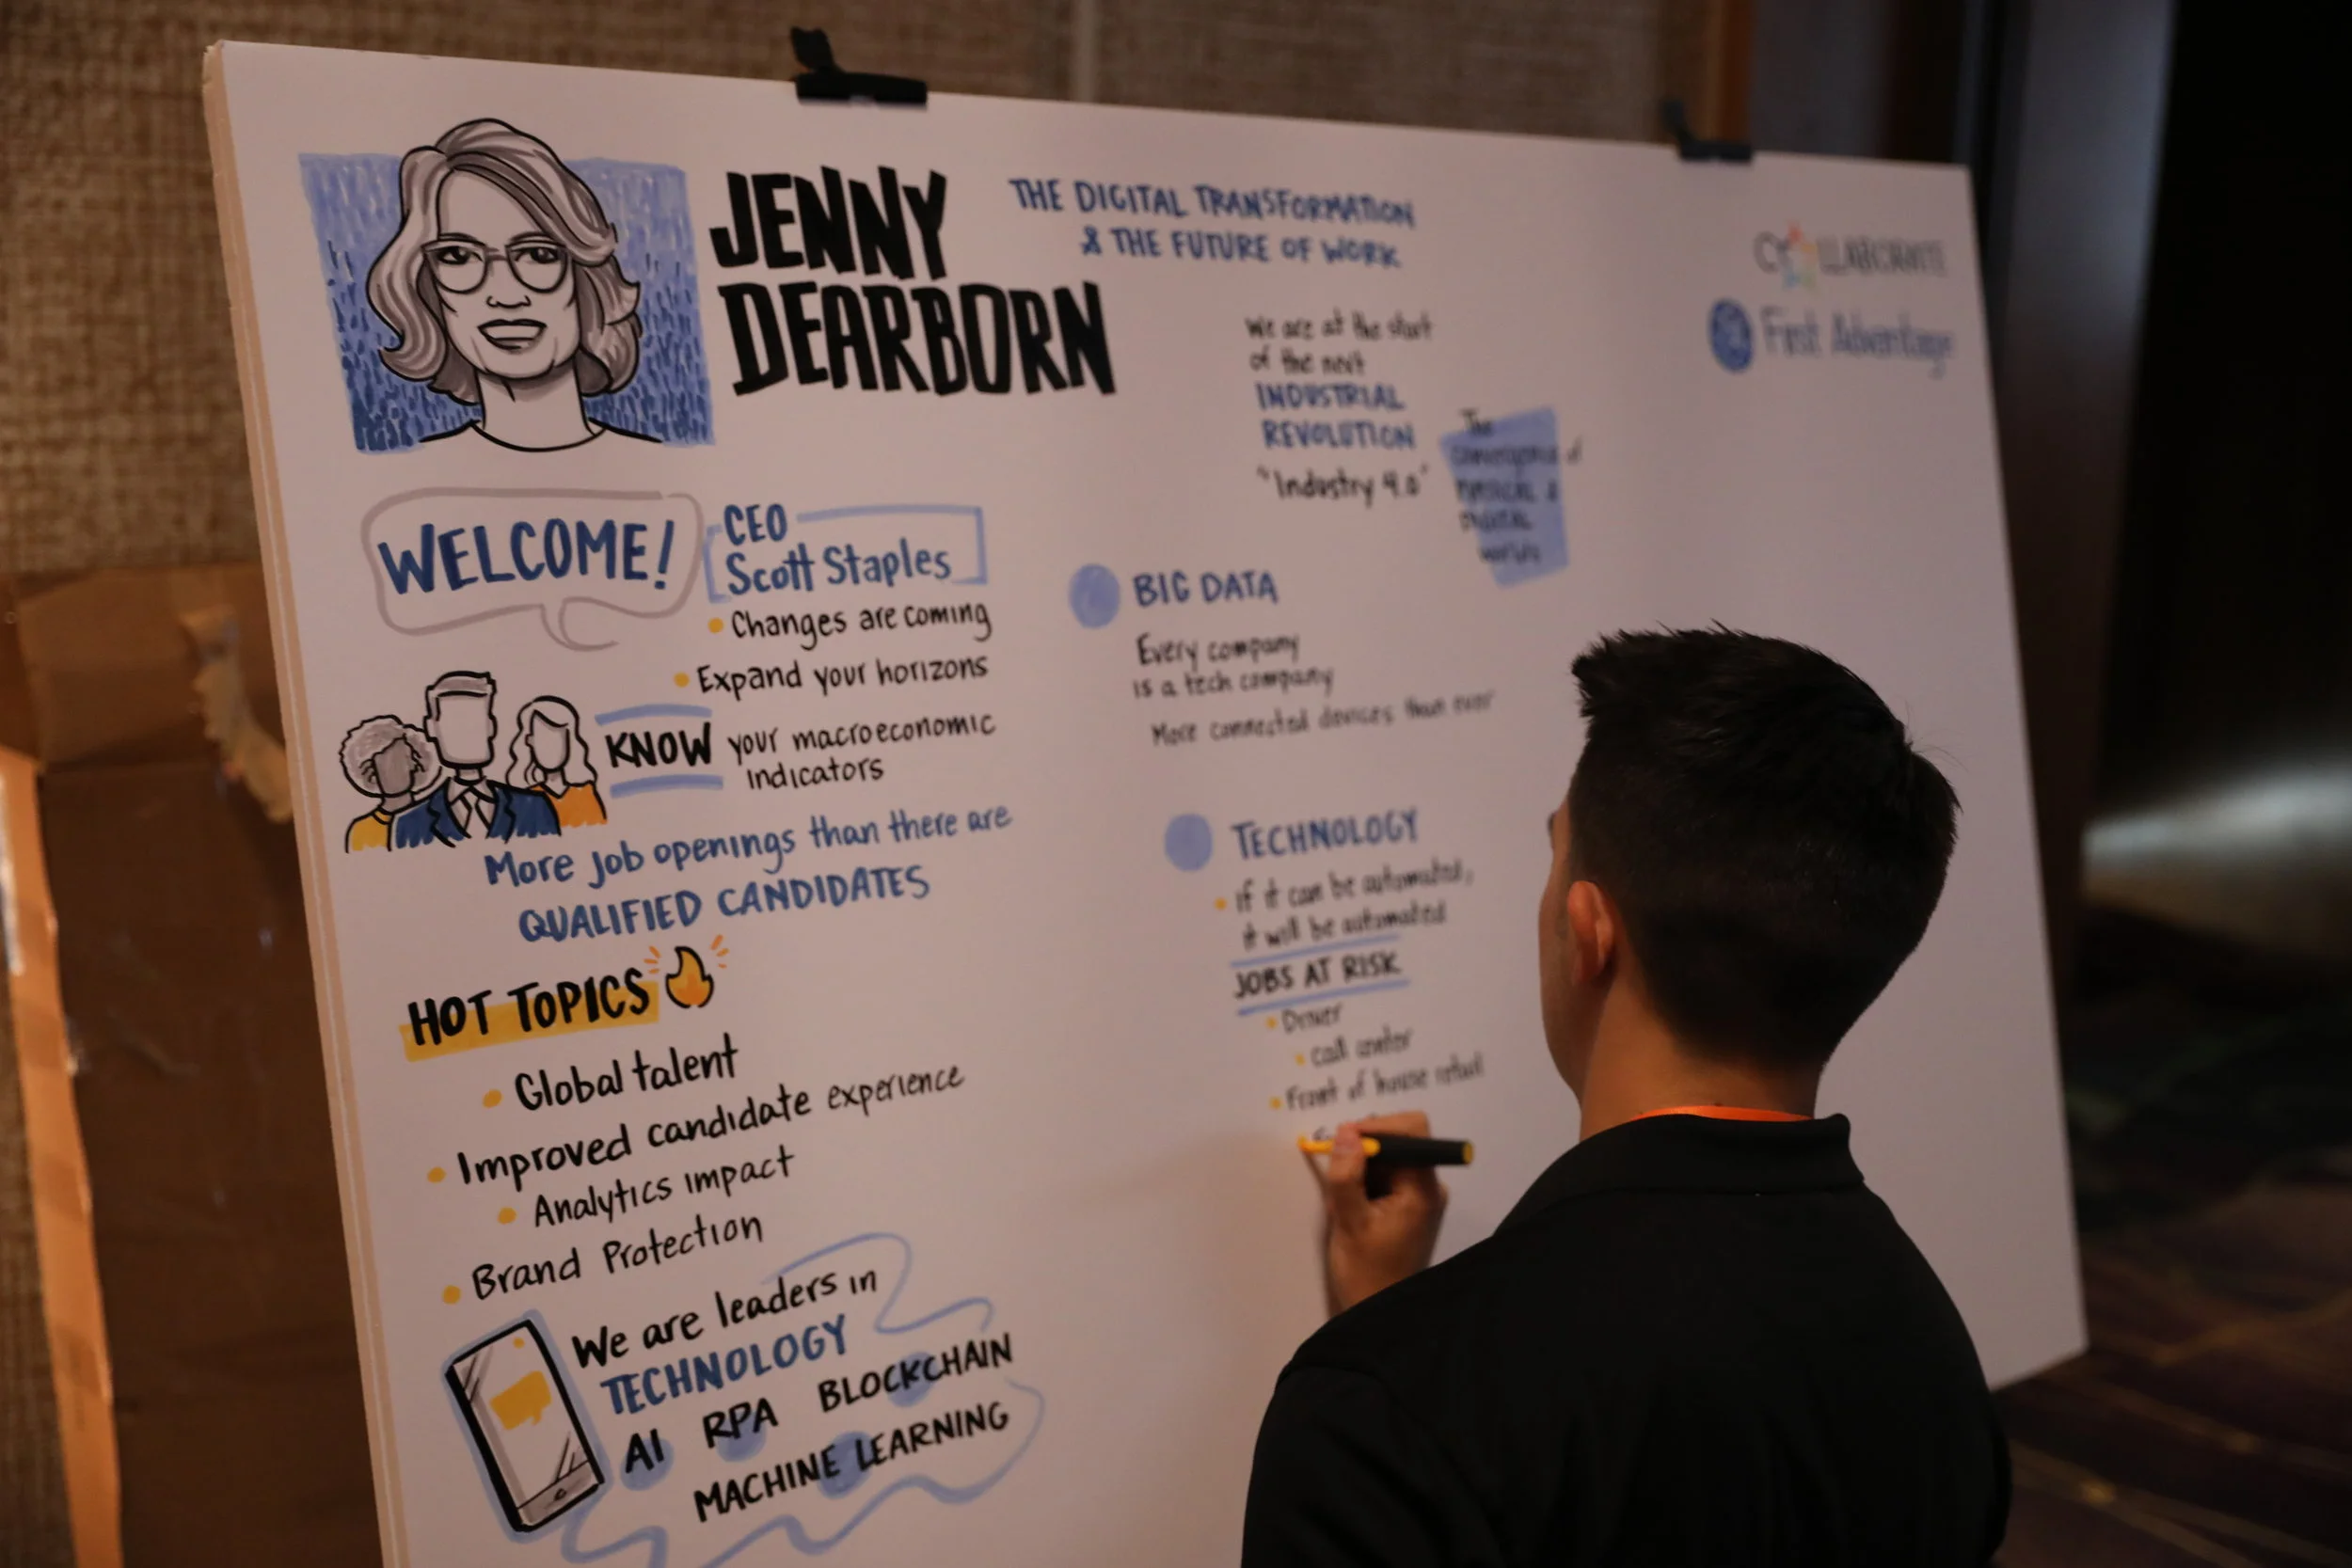 JENNY
DEARBORN
THE DIGITAL TRANSFORMATION
& THE FUTURE OF WORK
COLLABORATE
First Advantage
WELCOME!
CEO
Scott Staples
Changes are coming
Expand your horizons
KNOW your macroeconomic
indicators
More job openings than there are
QUALIFIED CANDIDATES
HOT TOPICS
Global talent
Improved candidate experience
Analytics impact
Brand Protection
We are leaders in
TECHNOLOGY
AI RPA BLOCKCHAIN
MACHINE LEARNING
We are at the start
of the next
INDUSTRIAL
REVOLUTION
"Industry 4.0"
The
convergence of
PHYSICAL &
DIGITAL
worlds
BIG DATA
Every company
is a tech company
More connected devices than ever
TECHNOLOGY
if it can be automated,
it will be automated
JOBS AT RISK
Driver
call center
Front of house retail